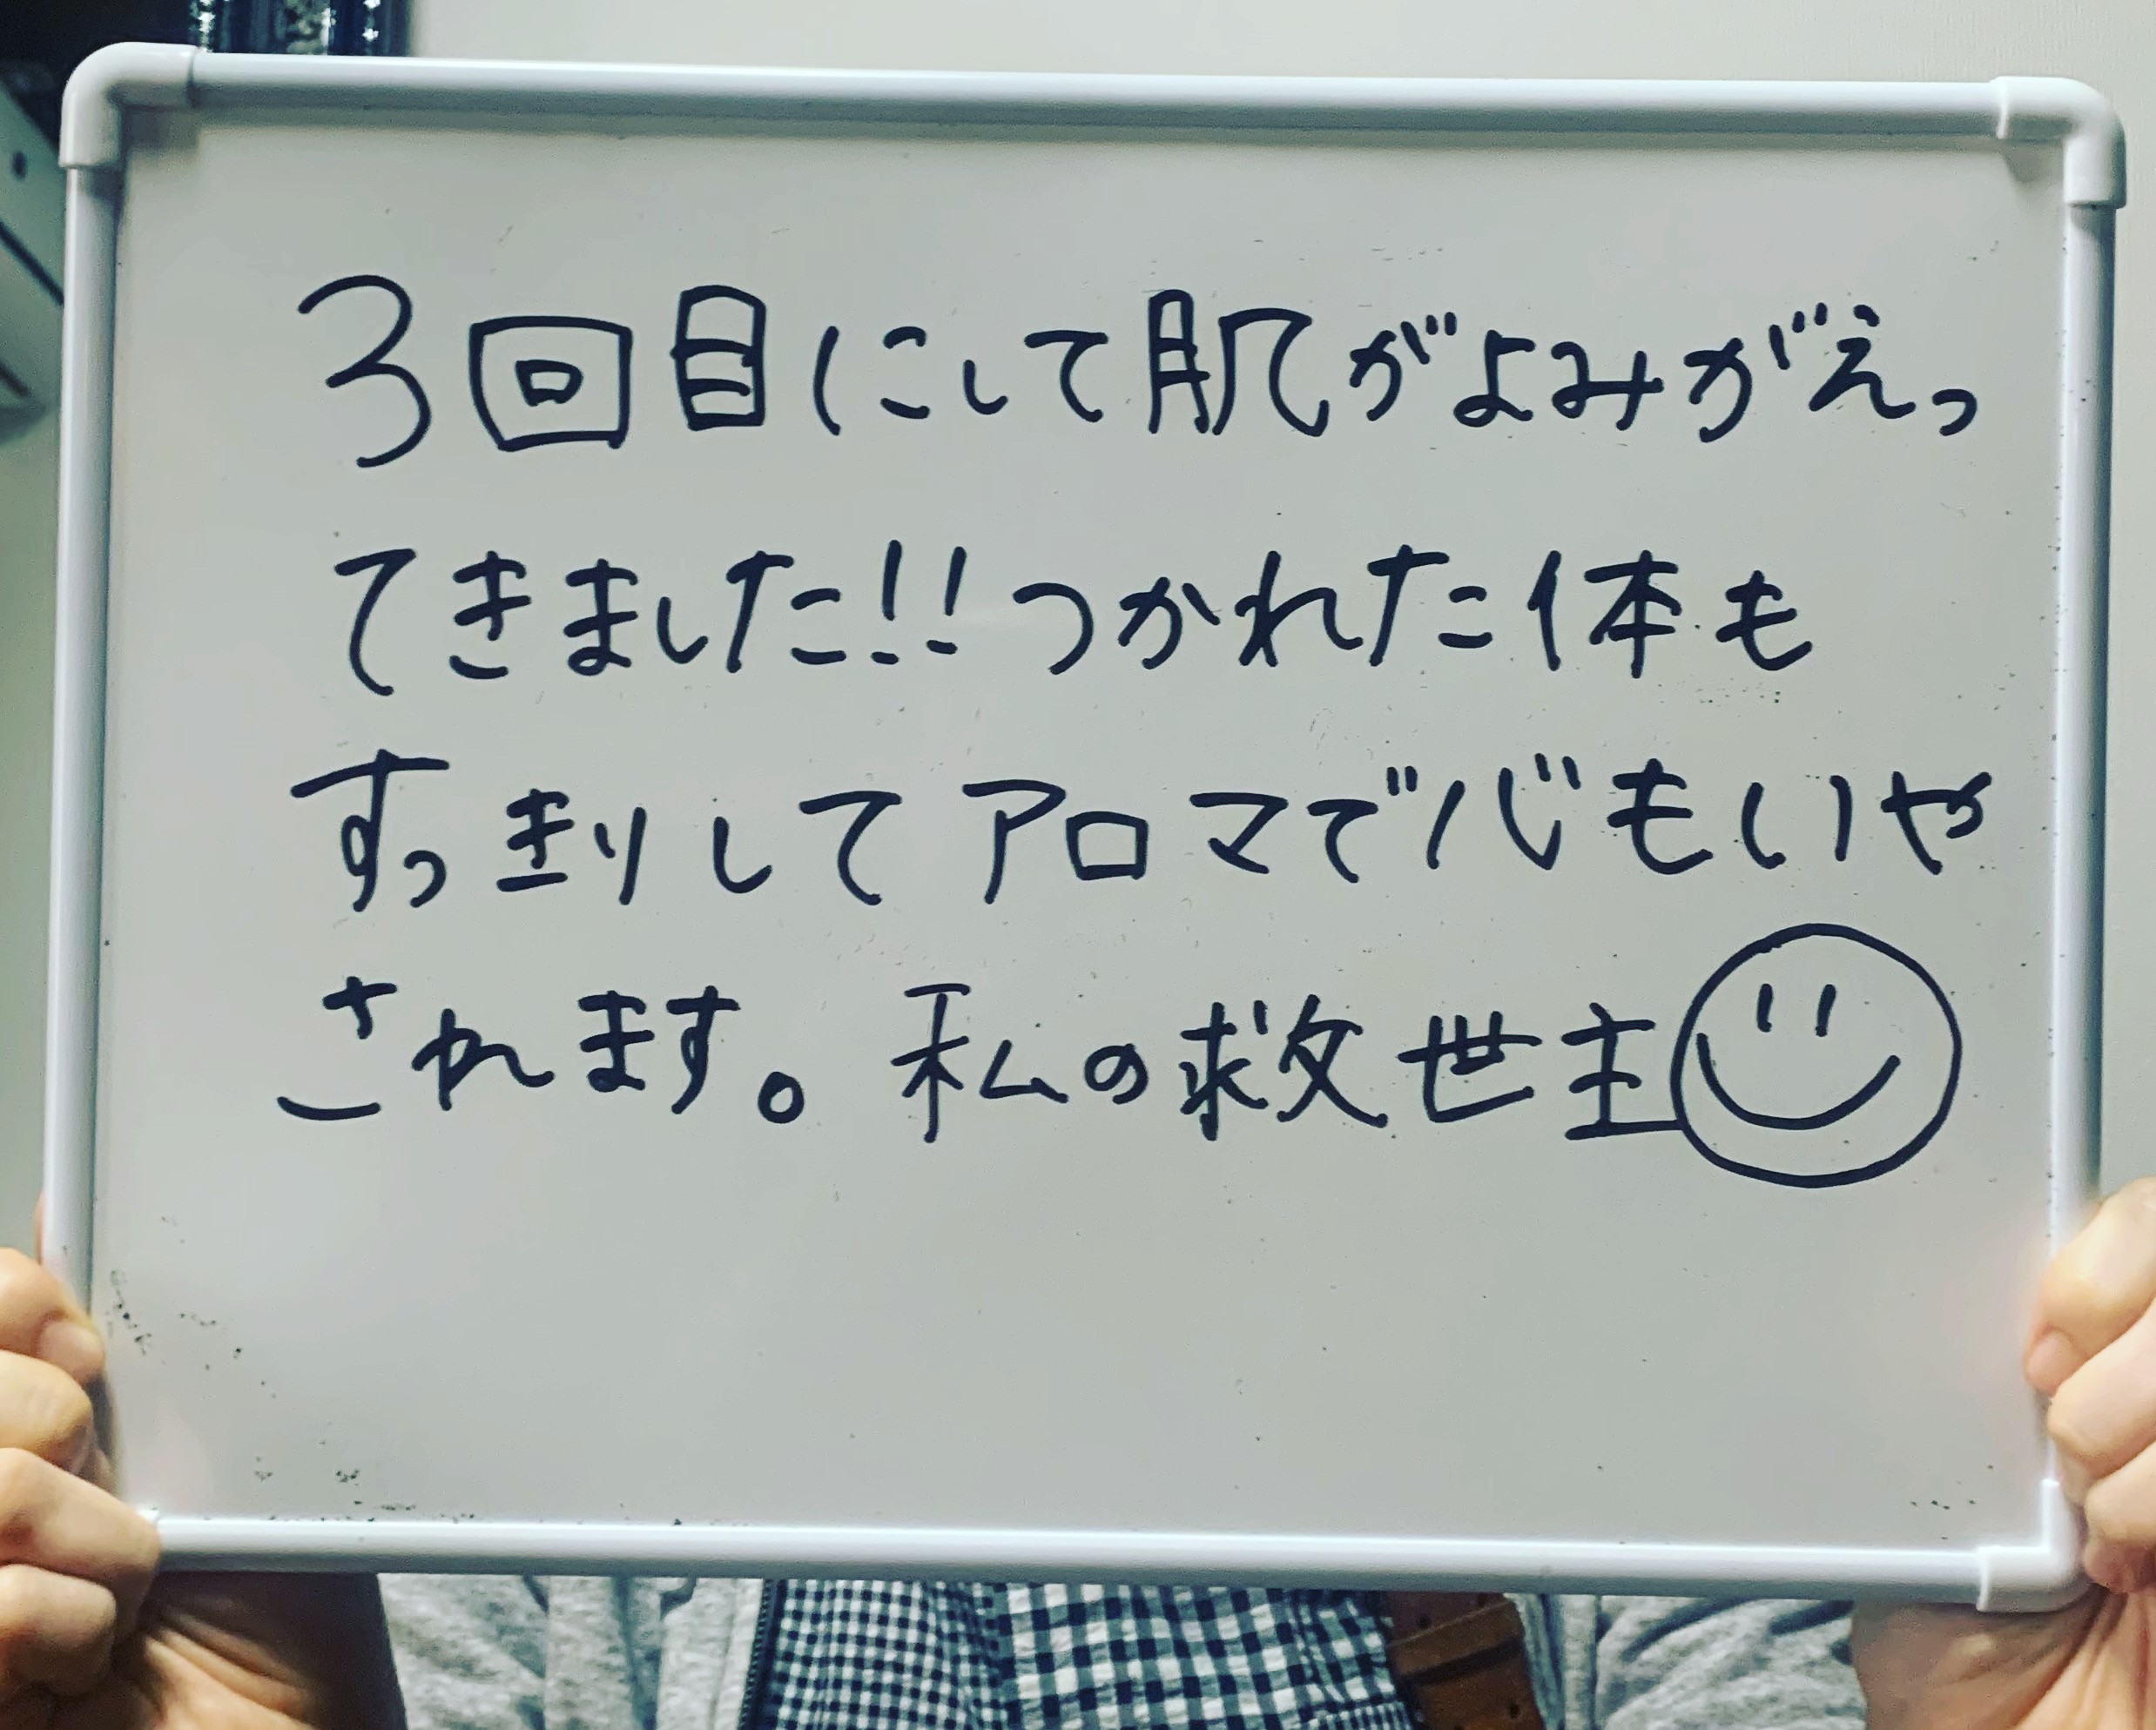 3回目にして肌がよみがえっ
てきました!!つかれた体も
すっきりしてアロマで心もいや
されます。私の救世主